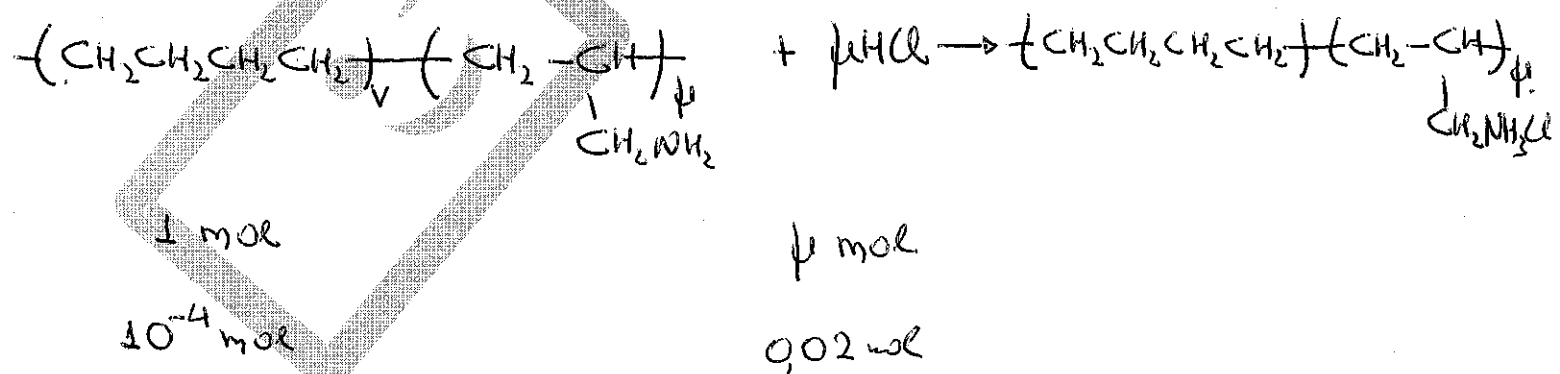 -(CH₂CH₂CH₂CH₂)ᵥ-(CH₂-CH)μ + μHCl → -(CH₂CH₂CH₂CH₂)-(CH₂-CH)μ
CH₂NH₂ CH₂NH₃Cl
1 mol μ mol
10⁻⁴ mol 0,02 mol